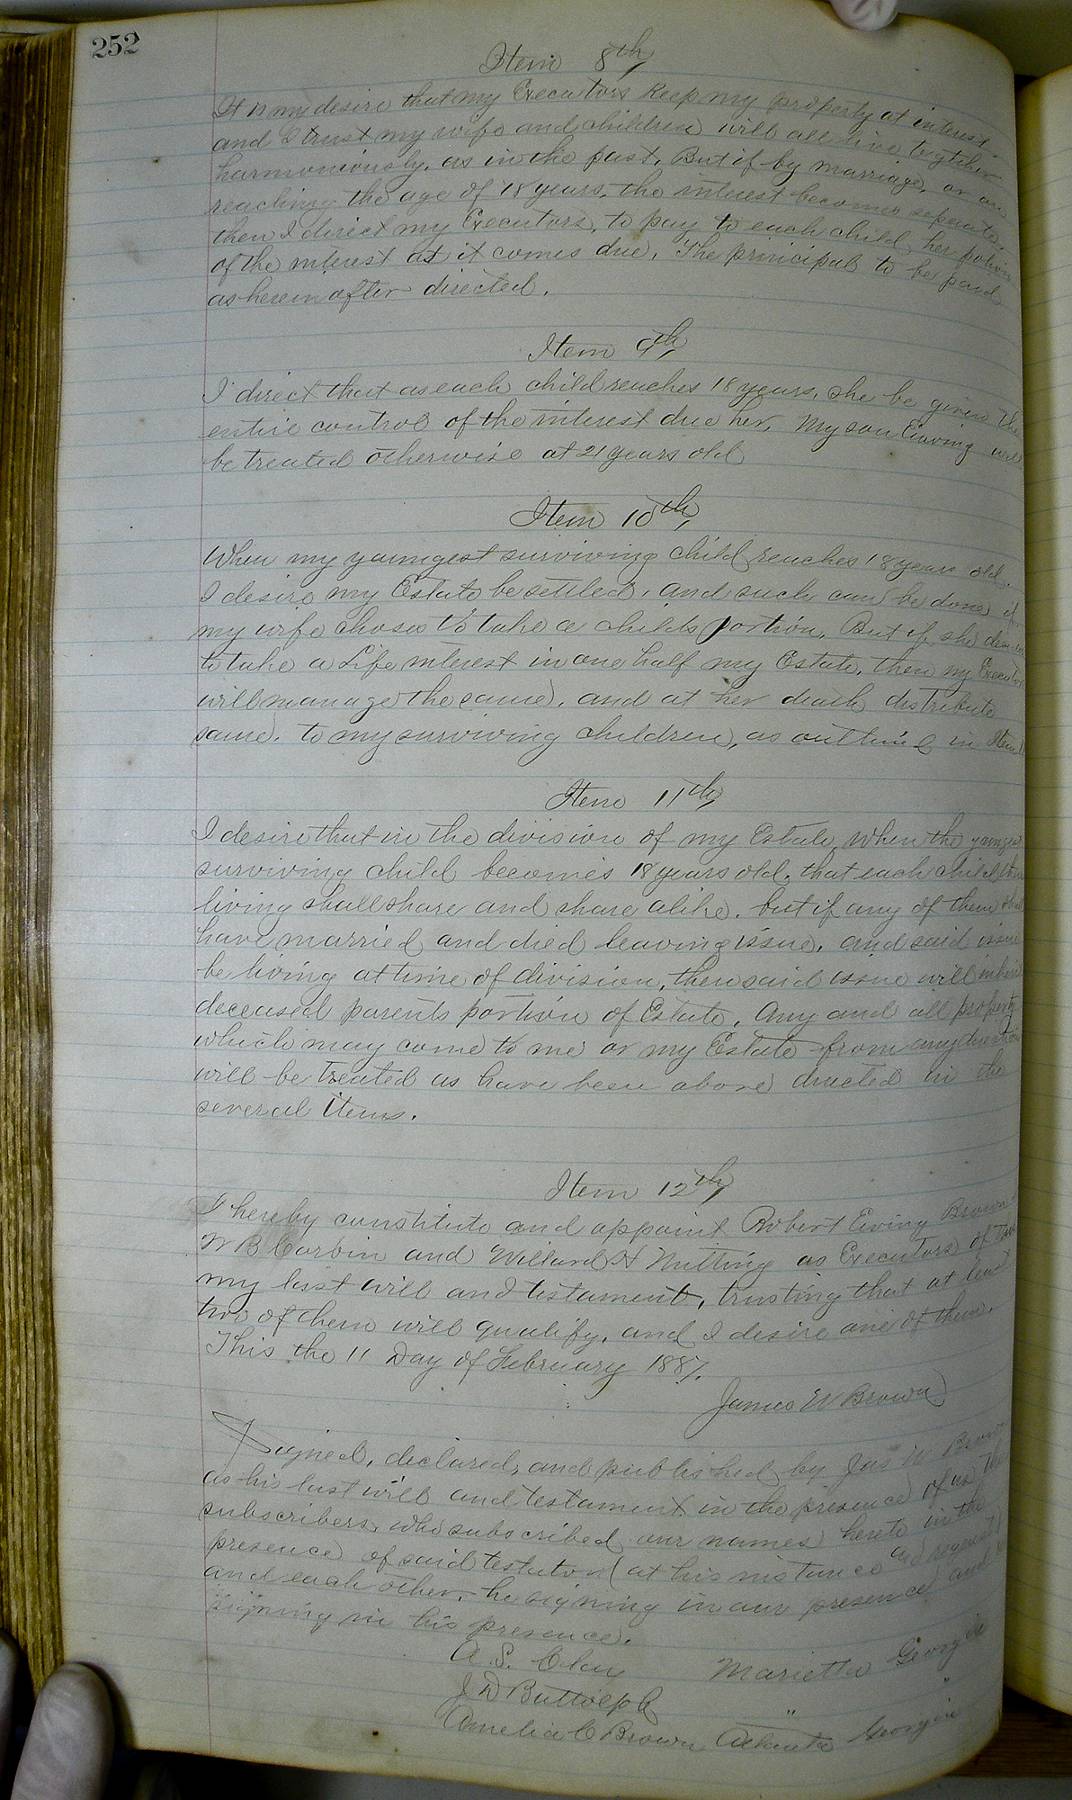 252
Item 8th
It is my desire that my Executors Keep my property at interest
and I trust my wife and children will all live together
harmoniously, as in the past. But if by marriage, or on
reaching the age of 18 years, the interest becomes seperate,
then I direct my Executors, to pay to each child her potion
of the interest as it comes due. The principal to be paid
as herein after directed.
Item 9th
I direct that as each child reaches 18 years, she be given the
entire control of the interest due her. My son Ewing will
be treated otherwise at 21 years old
Item 10th
When my youngest surviving child reaches 18 years old.
I desire my Estate be settled, and such can be done if
my wife choses to take a childs portion. But if she
to take a Life interest in one half my Estate, then my Executors
will manage the same, and at her death distribute
same, to my surviving children, as outlined in Item 11
Item 11th
I desire that in the division of my Estate, when the youngest
surviving child becomes 18 years old, that each child then
living shall share and share alike, but if any of them shall
have married and died leaving issue, and said issue
be living at time of division, then said issue will inherit
deceased parents portion of Estate. Any and all property
which may come to me or my Estate from any direction
will be treated as have been above directed in the
several items.
Item 12th
I hereby constitute and appoint Robert Ewing Brown
W B Corbin and Willard H Nutting as Executors of this
my last will and testament, trusting that at least
two of them will qualify, and I desire one of them.
This the 11 Day of February 1887.
James W Brown
Signed, declared, and published by Jas W Brown
as his last will and testament in the presence of us the
subscribers, who subscribed our names hereto in the
presence of said testator (at his instance and request)
and each other, he signing in our presence and
signing in his presence.
A. S. Clay Marietta Georgia
J D Buttolph " "
Amelia C Brown Atlanta Georgia